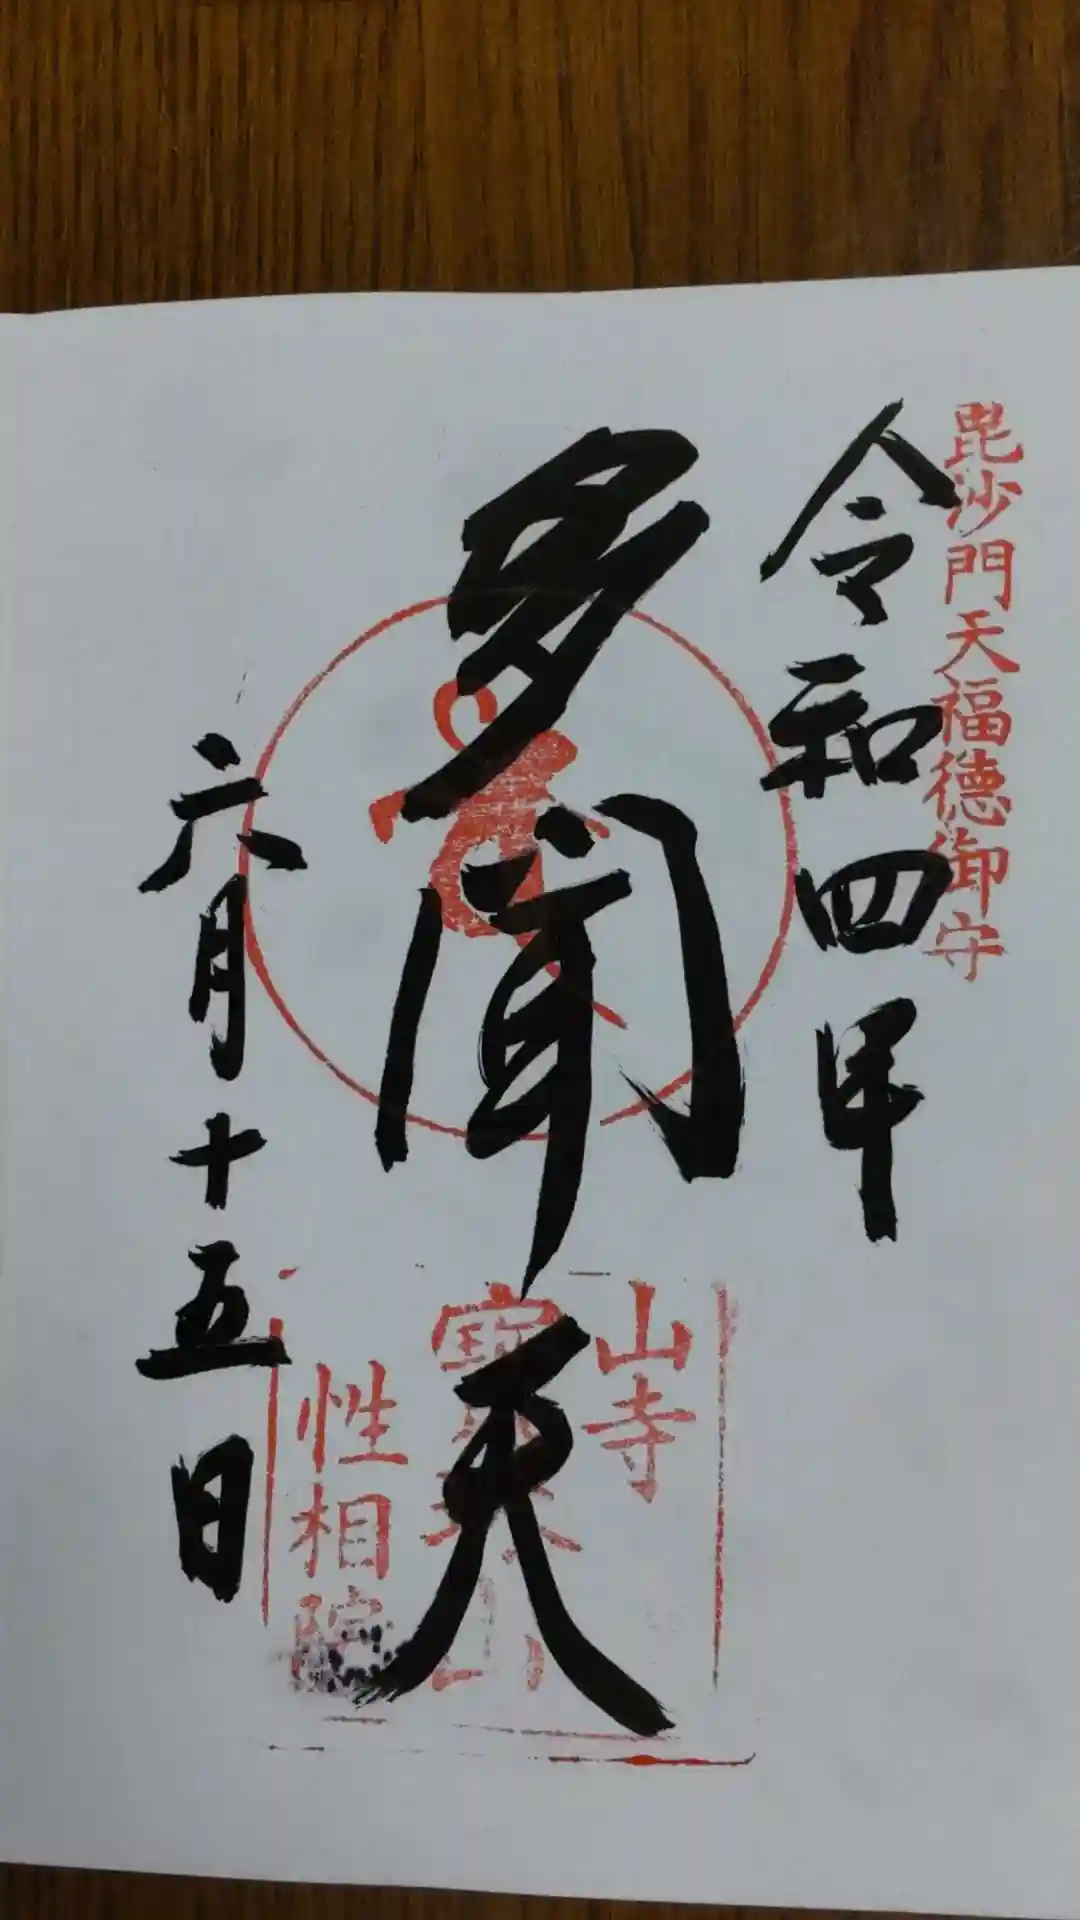 毘沙門天福徳御守
令和四年
多聞天
六月十五日
山寺
性相院